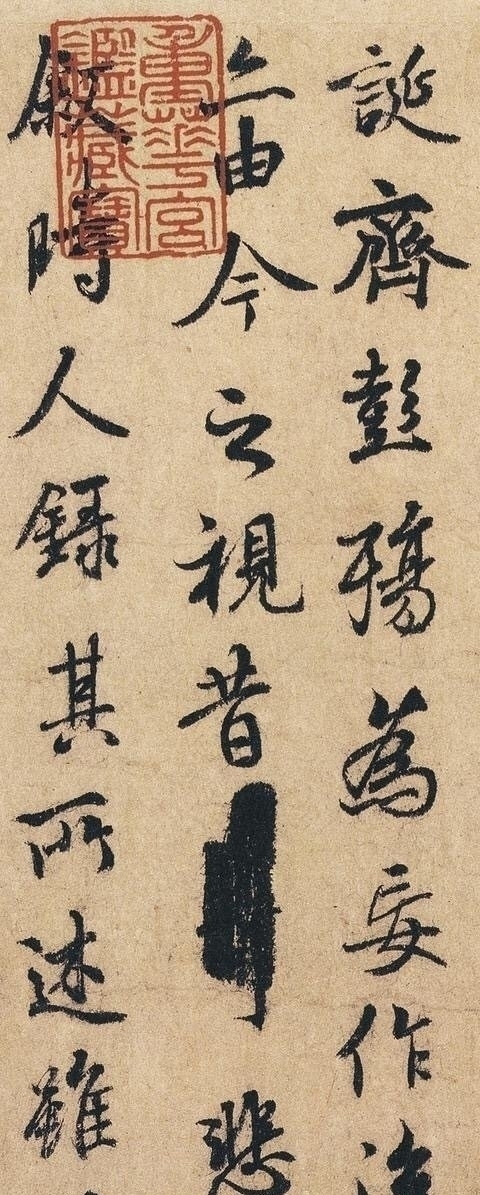 誕齊彭殤為妄作
亦由今之視昔悲
敘時人錄其所述雖
重華宮
鑑藏寶